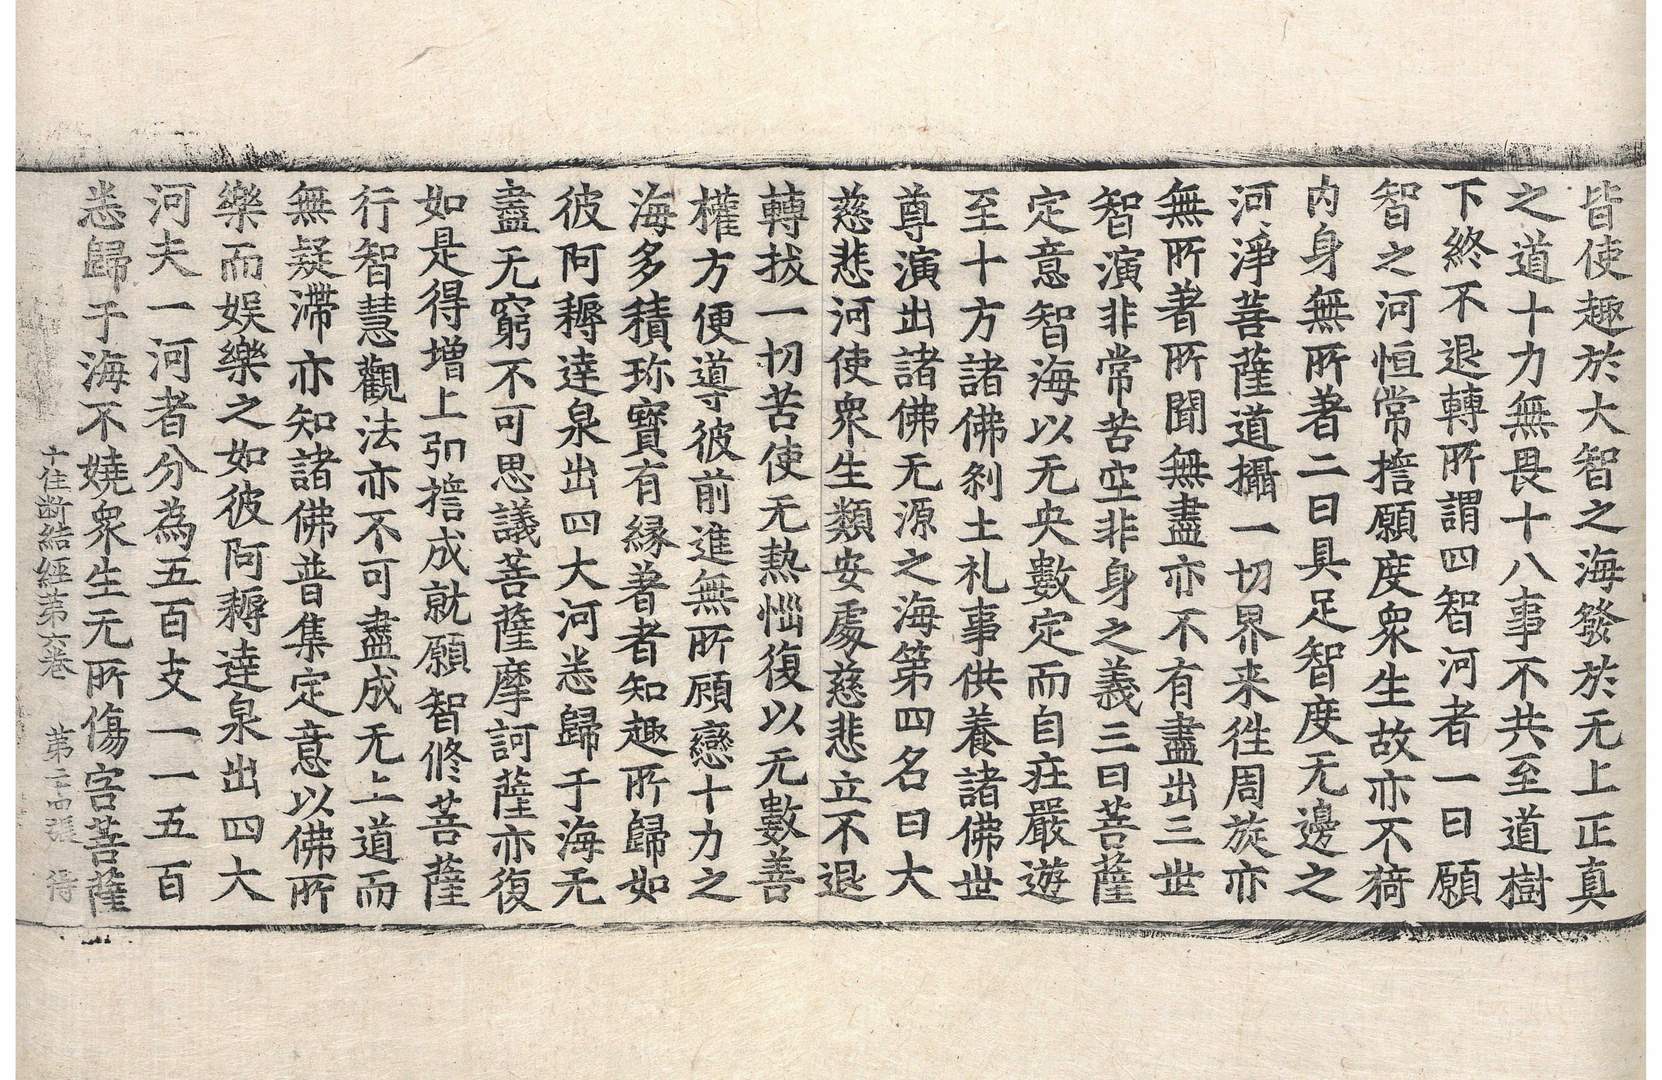 皆使趣於大智之海發於无上正真
之道十力無畏十八事不共至道樹
下終不退轉所謂四智河者一曰願
智之河恒常擔願度衆生故亦不猗
内身無所著二曰具足智度无邊之
河淨菩薩道攝一切界来往周旋亦
無所著所聞無盡亦不有盡出三世
智演非常苦空非身之義三曰菩薩
定意智海以无央數定而自庄嚴遊
至十方諸佛刹土礼事供養諸佛世
尊演出諸佛无源之海第四名曰大
慈悲河使衆生類安處慈悲立不退
轉拔一切苦使无熱惱復以无數善
權方便導彼前進無所顧戀十力之
海多積珎寶有緣著者知趣所歸如
彼阿耨達泉出四大河悉歸于海无
盡无窮不可思議菩薩摩訶薩亦復
如是得增上弘擔成就願智修菩薩
行智慧觀法亦不可盡成无上道而
無疑滯亦知諸佛普集定意以佛所
樂而娛樂之如彼阿耨達泉出四大
河夫一河者分為五百支一一五百
悉歸于海不嬈衆生无所傷害菩薩
十住断結經第六卷 第二十四張 得